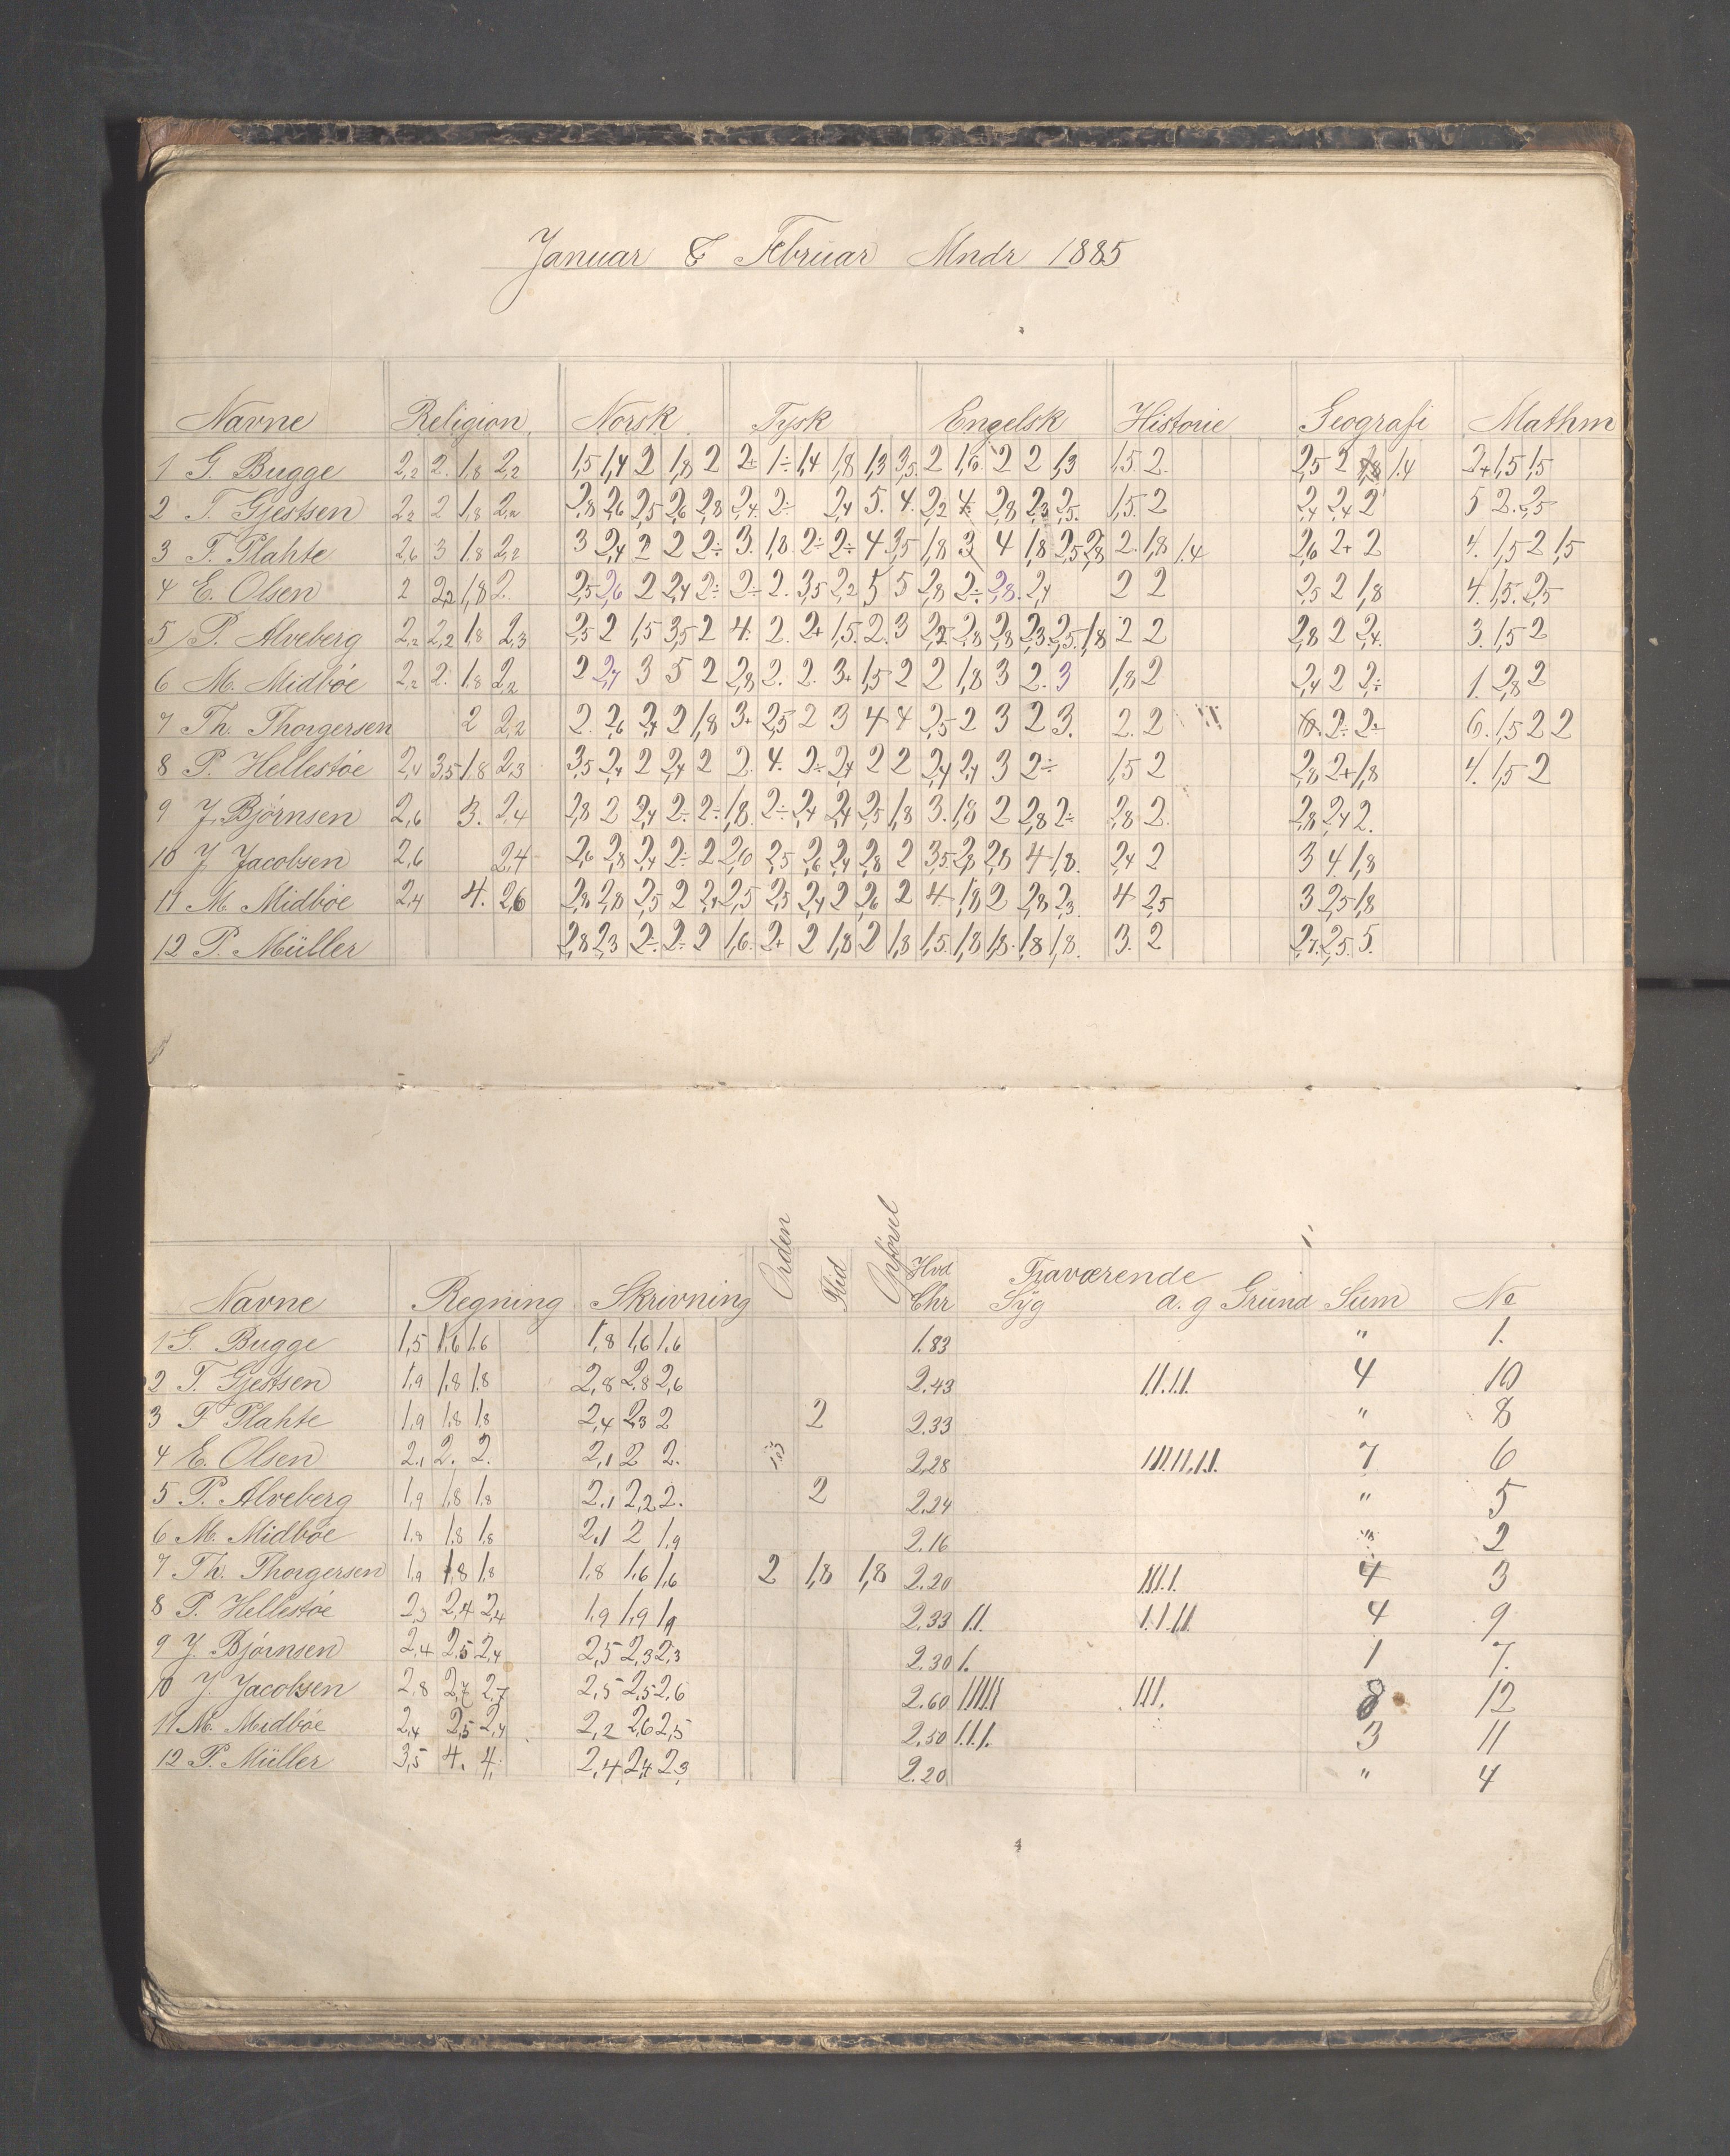 Januar & Februar Mndr 1885
Navne Religion Norsk Tysk Engelsk Historie Geografi Mathm
1 G. Bugge 2,2 2. 1,8 2,2 1,5 1,4 2 1,8 2 2+ 1÷ 1,4 1,8 1,3 3,5 2 1,6 2 2 1,3 1,5 2. 2,5 2 1,4 2+ 1,5 1,5
2 T. Gjestsen 2,2 2 1,8 2,2 2,8 2,6 2,5 2,6 2,8 2,4 2÷ 2,4 5. 4. 2,2 4. 2,8 2,3 2,5. 1,5. 2 2,4 2,4 2 5 2. 2,5
3 F. Plahte 2,6 3 1,8 2,2 3 2,4 2 2 2÷ 3. 1,8. 2÷ 2÷ 4 3,5 1,8 3 4 1,8 2,5 2,8 2. 1,8 1.4 2,6 2+ 2 4. 1,5 2 1,5
4 E. Olsen 2 2,2 1,8 2. 2,5 2,6 2 2,4 2÷ 2÷ 2. 3,5 2,2 5 5 2,8 2÷ 2,8. 2,4 2 2 2,5 2 1,8 4. 1,5. 2,5
5 P. Alveberg 2,2 2,2 1,8 2,3 2,5 2 1,5 3,5 2 4. 2. 2+ 1,5. 2. 3 2,2 2,8 2,8 2,3 2,5. 1,8 2 2 2,8 2 2,4. 3. 1,5 2
6 M. Midbøe 2,2 2. 1,8 2,2 2 2,7 3 5 2 2,8 2. 2. 3+ 1,5 2 2 1,8 3 2. 3 1,8 2 2,4 2 2÷ 1. 2,8 2
7 Th. Thorgersen 2 2,2 2. 2,6 2,4 2 1,8 3+ 2,5 2 3 4 4 2,5 2 3 2 3. 2. 2 2÷ 2÷ 6. 1,5 2 2
8 P. Hellestøe 2,4 3,5 1,8 2,3 3,5 2,4 2 2,4 2 2. 4. 2÷ 2,4 2 2 2,4 2,4 3 2÷ 1,5 2 2,8 2+ 1,8 4. 1,5 2
9 J. Bjørnsen 2,6 3. 2,4 2,8 2 2,4 2÷ 2÷ 1,8. 2÷ 2,4 2,4 2,5 1,8 3. 1,8 2 2,8 2÷ 2,8 2. 2,8 2,4 2.
10 J. Jacobsen 2,6 2,4 2,6 2,8 2,4 2÷ 2 2,5 2,6 2,4 2,8 2 3,5 2,8 2,8 4 1,8. 2,4 2 3 4 1,8
11 M. Midbøe 2,4 4. 2,6 2,8 2,8 2,5 2 2,4 2,5 2,5 2,4 2 2,6 2 4 1,8 2 2,8 2,3 4 2,5 3 2,5 1,8
12 P. Müller 2,8 2,3 2÷ 2÷ 2 1,6. 2+ 2 1,8 2 1,8 1,5. 1,8 1,8. 1,8 1,8. 3. 2 2,7. 2,5. 5.
Navne Regning Skrivning Orden Flid Opførsel Hvd Chr Fraværende Syg a. g Grund Sum No
1 G. Bugge 1,5 1,6 1,6 1,8 1,6 1,6 1.83 " 1.
2 T. Gjestsen 1,9 1,8 1,8 2,8 2,8 2,6 2.43 11.1.1. 4 10
3 F. Plahte 1,9 1,8 1,8 2,4 2,3 2 2 2.33 " 8
4 E. Olsen 2,1 2. 2. 2,1 2 2. 2,28 111.11.1.1. 7 6
5 P. Alveberg 1,9 1,8 1,8 2,1 2,2 2. 2 2.24 " 5
6 M. Midbøe 1,8 1,8 1,8 2,1 2 1,9 2.16 " 2
7 Th. Thorgersen 1,9 1,8 1,8 1,8 1,6 1,6 2 1,8 1,8 2.20 111.1. 4 3
8 P. Hellestøe 2,3 2,4 2,4 1,9 1,9 1,9 2.33 11. 1.1.11. 4 9
9 J. Bjørnsen 2,4 2,5 2,4 2,5 2,3 2,3 2.30 1. 1 7.
10 J. Jacobsen 2,8 2,7 2,7 2,5 2,5 2,6 2.60 11111 111. 8 12
11 M. Midbøe 2,4 2,5 2,4 2,2 2,6 2,5 2.50 1.1.1. 3 11
12 P. Müller 3,5 4. 4. 2,4 2,4 2,3 2.20 " 4